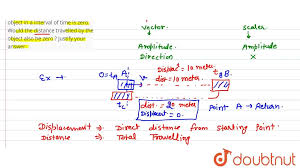 object in a interval of time is zero.
Would the distance travelled by the
object also be zero ? Justify your
answer.
vector. scaler
Amplitude. Amplitude
Direction ×
Ex → O= tA A v tB B.
Displac^t = 10 meter
dist = 10 meter.
tc dist. = 20 meter
Displacement = 0.
Point A → Return.
Displacement ⇒ Direct distance from starting point.
Distance ⇒ Total Travelling
doubtnut